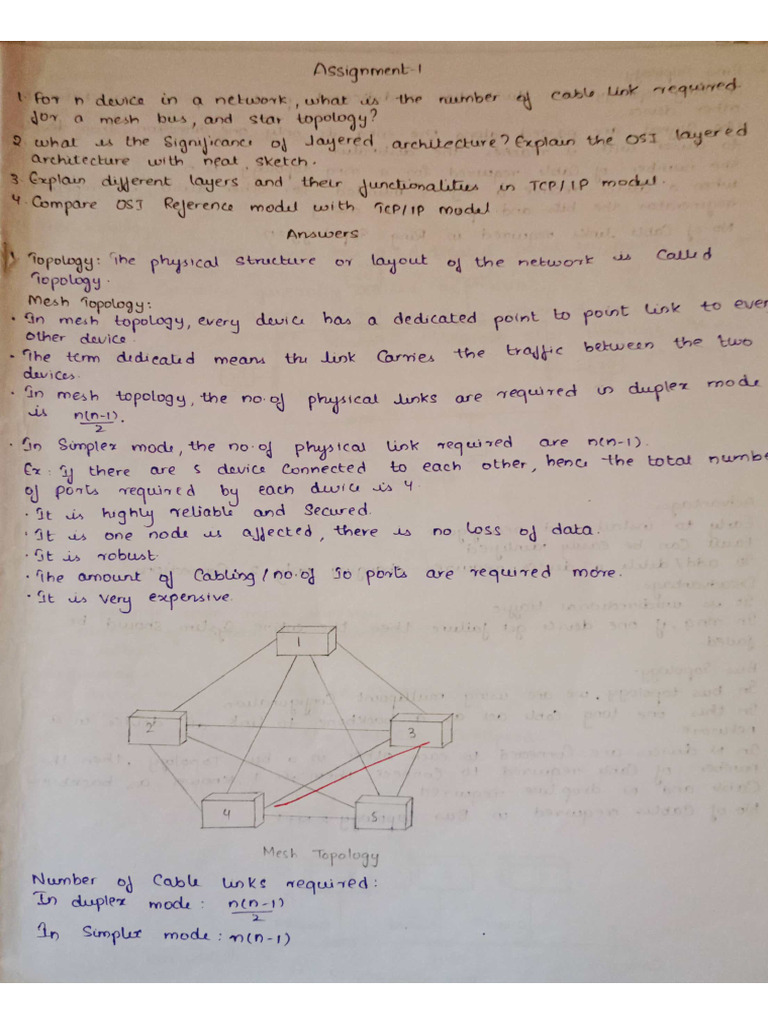 Assignment-1
1. For n device in a network, what is the number of cable link required
for a mesh bus, and star topology?
2. what is the Significance of layered architecture? Explain the OSI layered
architecture with neat sketch.
3. Explain different layers and their functionalities in TCP/IP model.
4. Compare OSI Reference model with TCP/IP model
Answers
1. Topology: The physical structure or layout of the network is called
Topology.
Mesh Topology:
• In mesh topology, every device has a dedicated point to point link to ever
other device.
• The term dedicated means the link Carries the traffic between the two
devices.
• In mesh topology, the no.of physical links are required in duplex mode
is n(n-1)/2.
• In Simplex mode, the no.of physical link required are n(n-1).
Ex: If there are 5 device connected to each other, hence the total numbe
of ports required by each device is 4.
• It is highly reliable and Secured.
• It is one node is affected, there is no loss of data.
• It is robust.
• The amount of Cabling/no.of Io ports are required more.
• It is very expensive.
1
2
3
4
5
Mesh Topology
Number of Cable links required:
In duplex mode: n(n-1)/2
In Simplex mode: n(n-1)